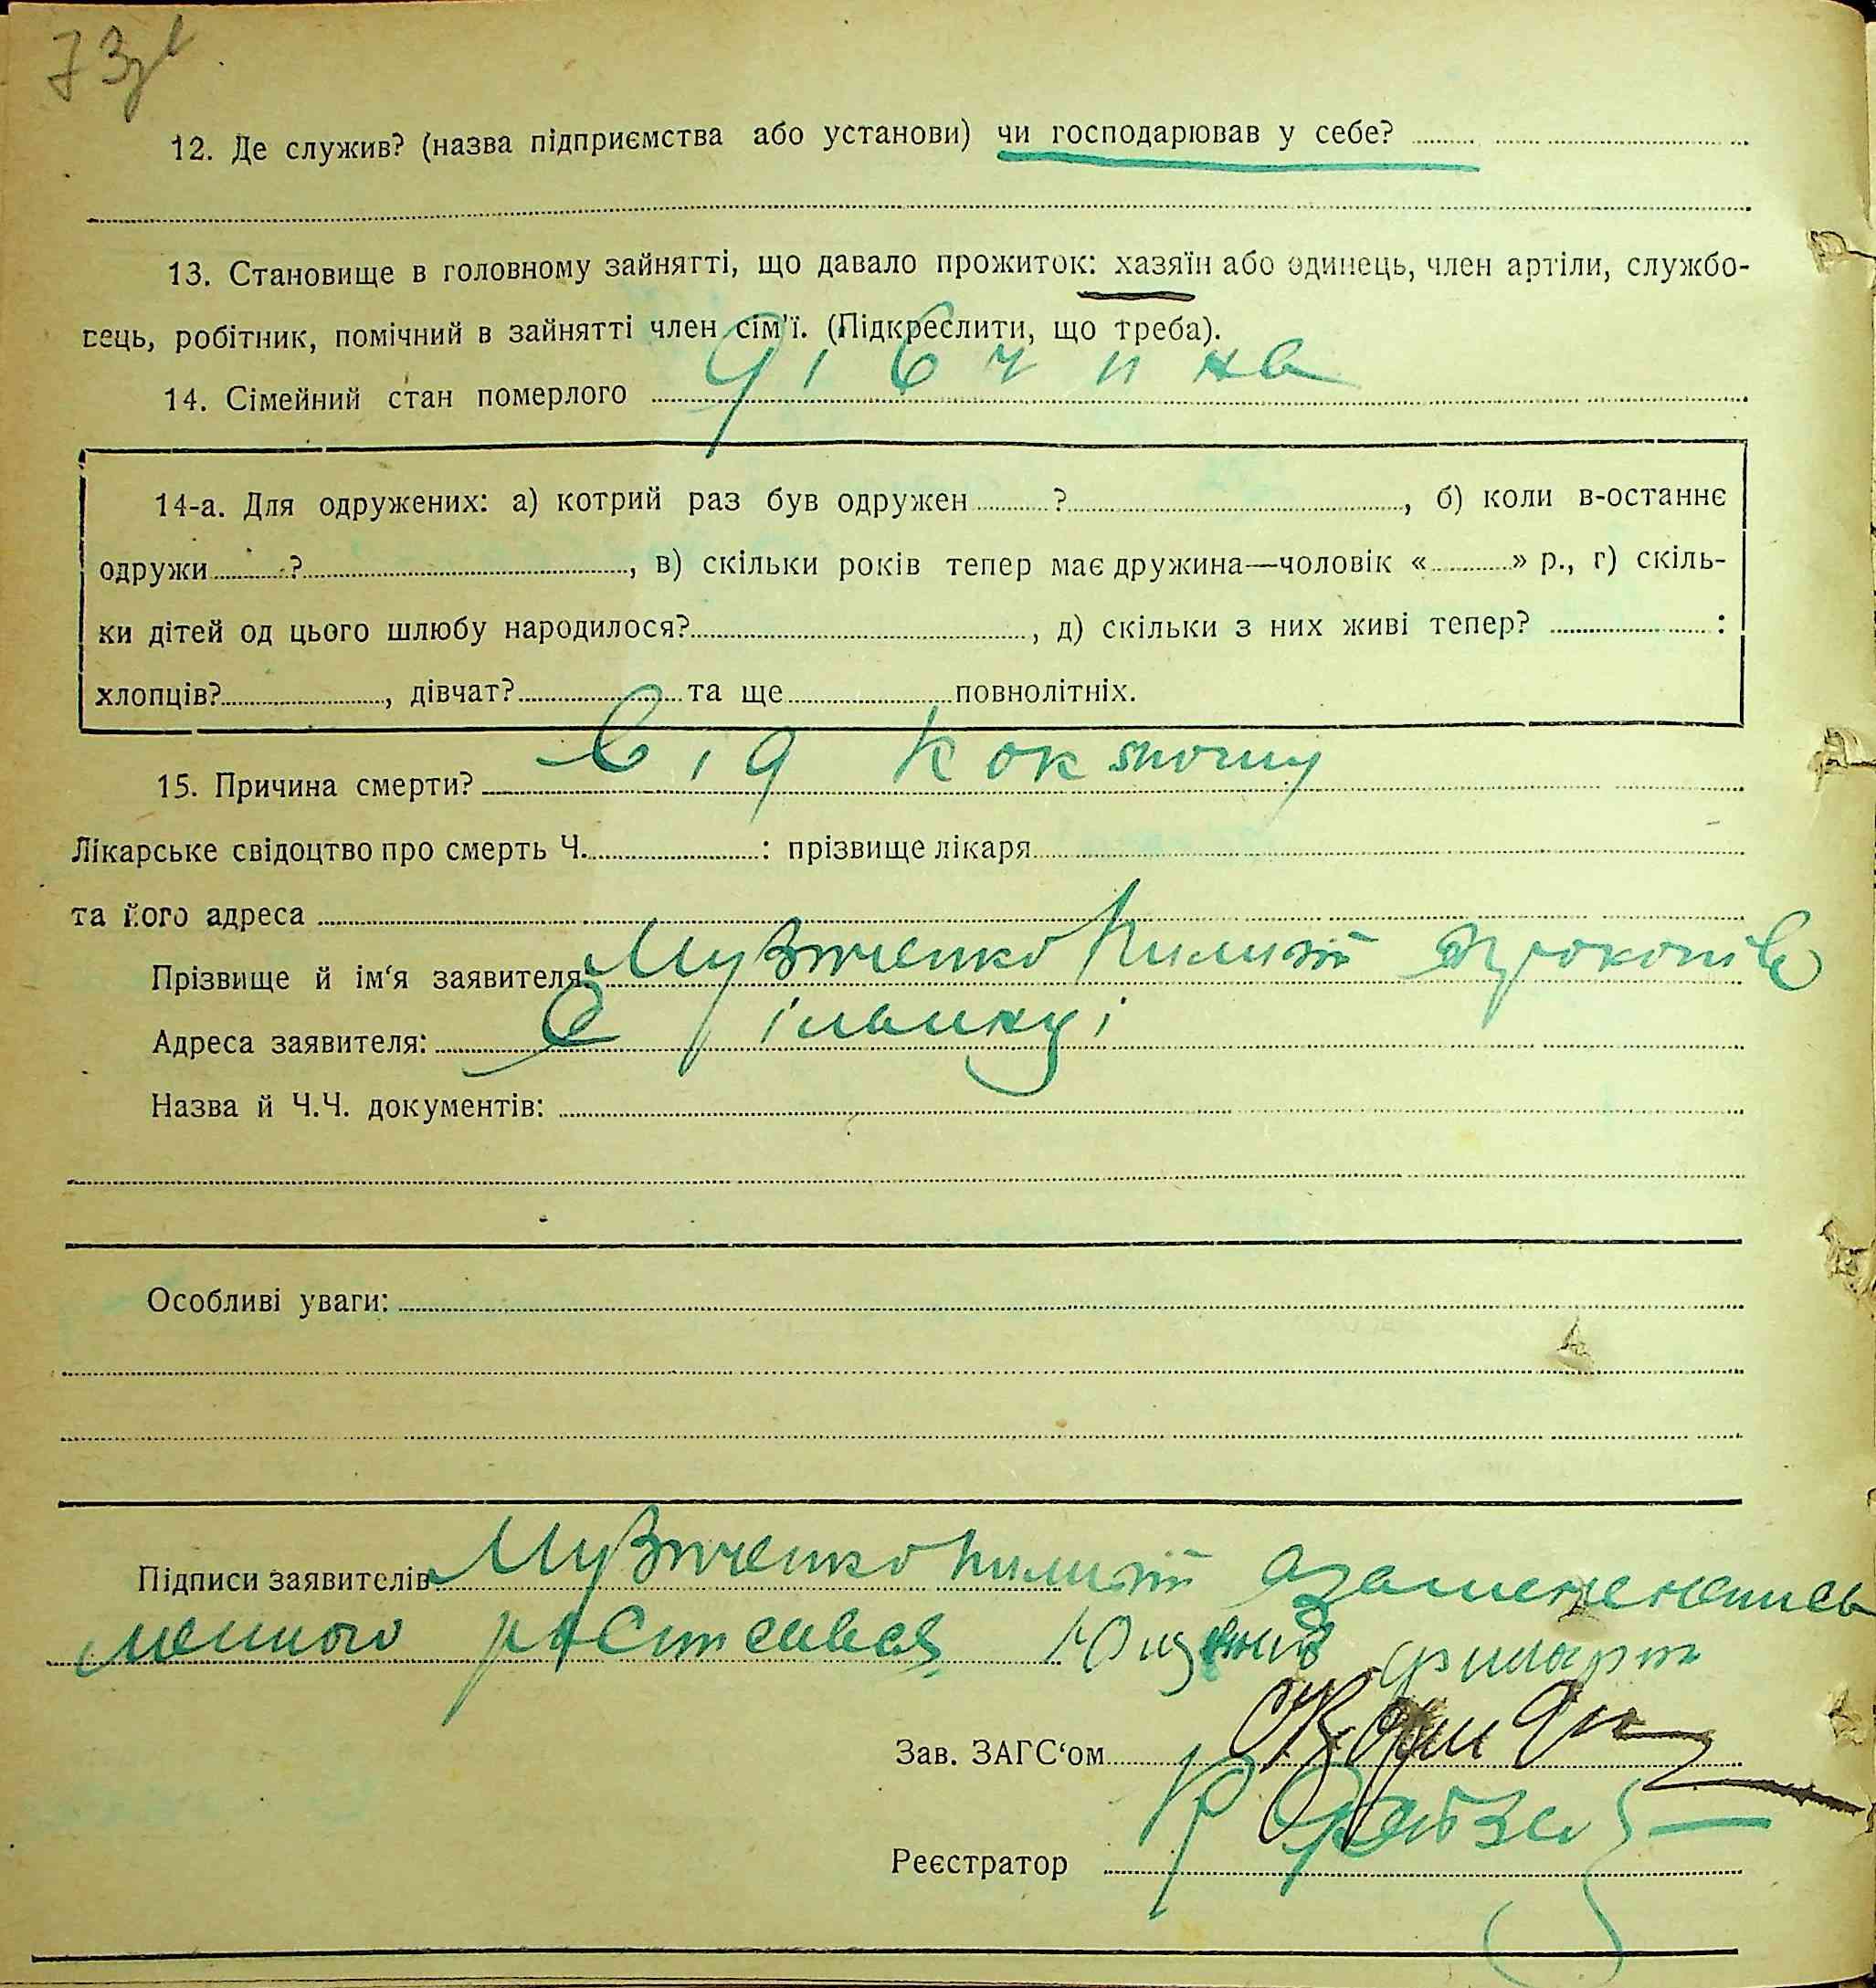 73
12. Де служив? (назва підприємства або установи) чи господарював у себе?
13. Становище в головному зайнятті, що давало прожиток: хазяїн або одинець, член артіли, службо-
вець, робітник, помічний в зайнятті член сім'ї. (Підкреслити, що треба).
14. Сімейний стан померлого дівчина
14-а. Для одружених: а) котрий раз був одружен ? , б) коли в-останнє
одружи ? , в) скільки років тепер має дружина—чоловік « » р., г) скіль-
ки дітей од цього шлюбу народилося? , д) скільки з них живі тепер? :
хлопців? , дівчат? та ще повнолітніх.
15. Причина смерти? Від коклюшу
Лікарське свідоцтво про смерть Ч. : прізвище лікаря
та його адреса
Прізвище й ім'я заявителя: Музиченко Пилип Прокопів
Адреса заявителя: С
Назва й Ч.Ч. документів:
Особливі уваги:
Підписи заявителів Музиченко Пилип а за
Зав. ЗАГС'ом
Реєстратор